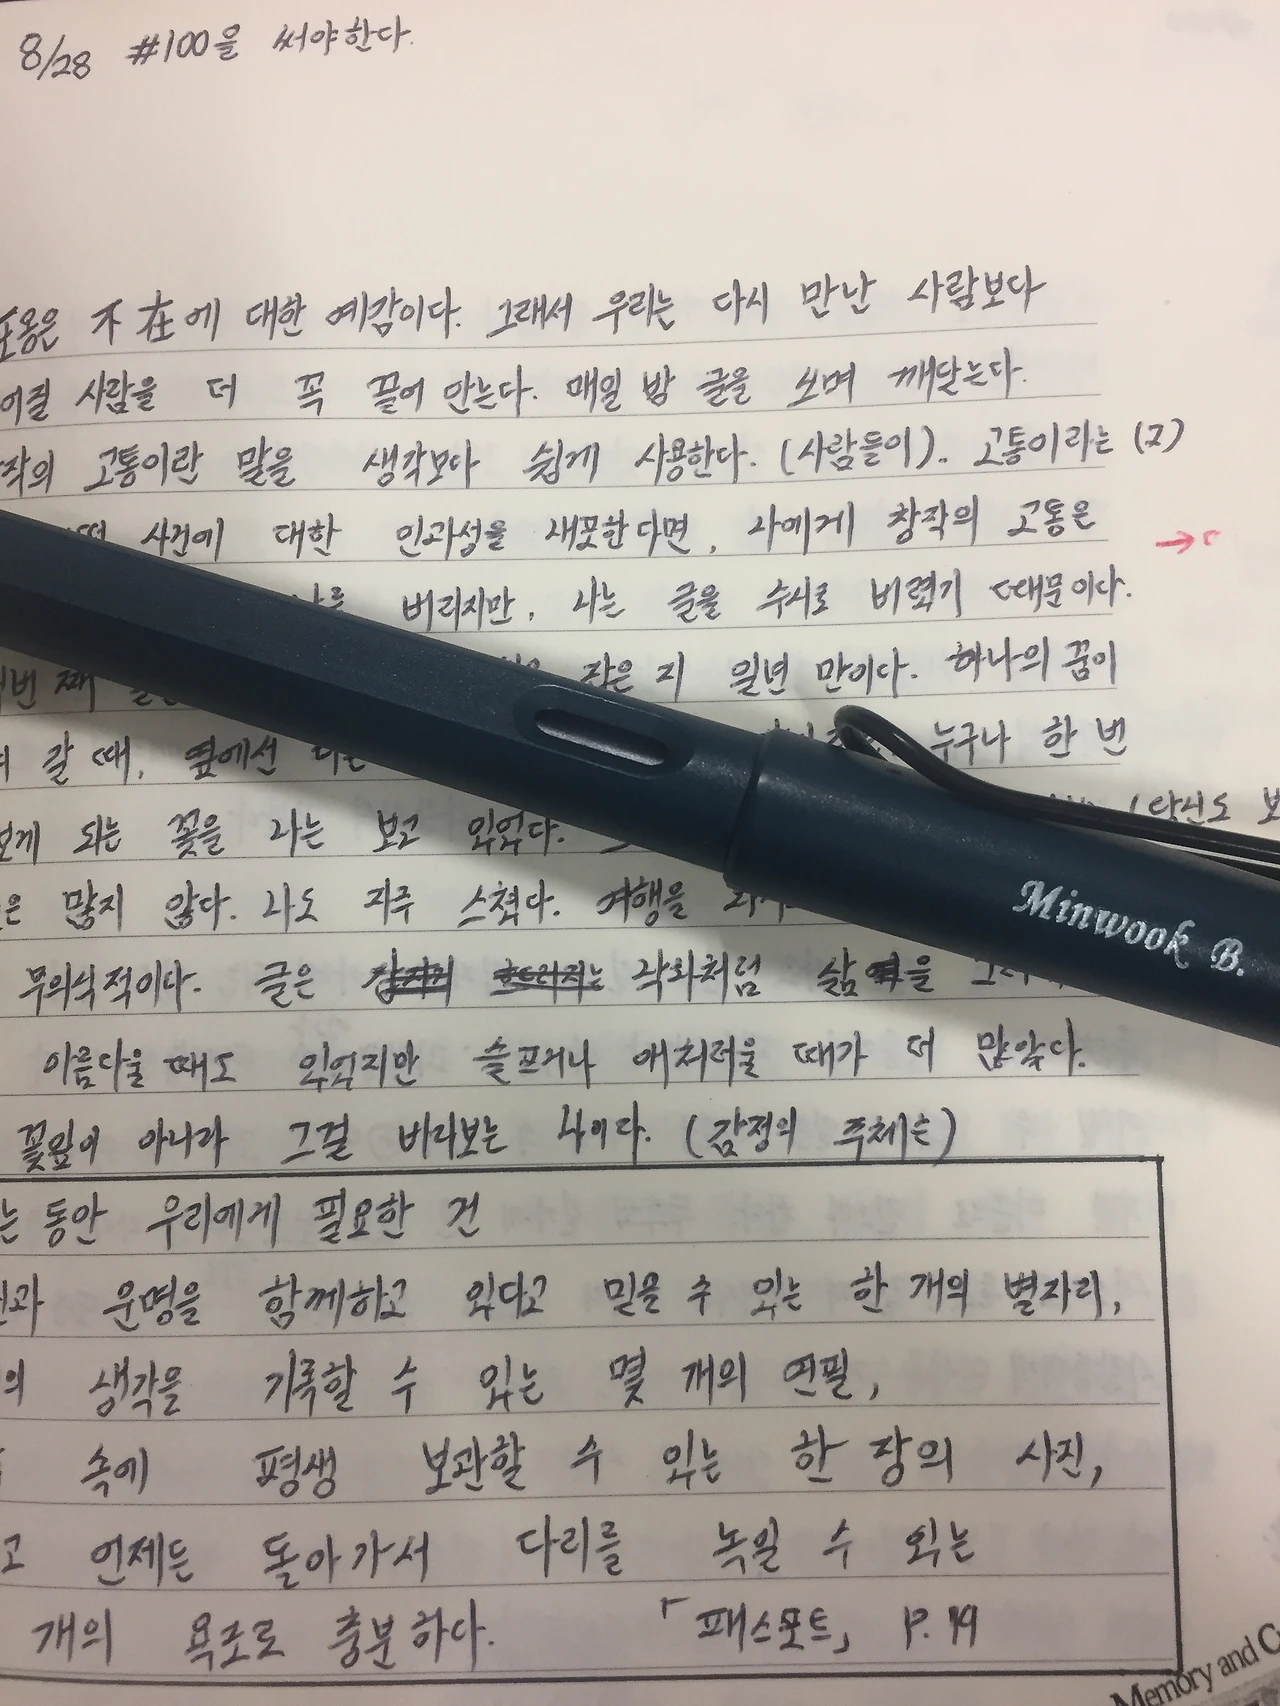 8/28 #100을 써야한다.
포옹은 不在에 대한 예감이다. 그래서 우리는 다시 만난 사람보다
사람을 더 꼭 끌어 안는다. 매일 밤 글을 쓰며 깨닫는다.
고통이란 말을 생각보다 쉽게 사용한다. (사람들이). 고통이라는 (고)
사건에 대한 인과성을 내포한다면, 나에게 창작의 고통은
버리지만, 나는 글을 수시로 버렸기 때문이다.
번 째 작은 지 일년 만이다. 하나의 꿈이
갈 때, 옆에선 누구나 한 번
되는 꽃을 나는 보고 있었다. (당신도 보
많지 않다. 나도 자주 스쳤다. 여행을
무의식적이다. 글은 각화처럼 삶을
아름다울 때도 있었지만 슬프거나 애처러울 때가 더 많았다.
꽃잎이 아니라 그걸 바라보는 나이다. (감정의 주체는)
는 동안 우리에게 필요한 건
운명을 함께하고 있다고 믿을 수 있는 한 개의 별자리,
의 생각을 기록할 수 있는 몇 개의 연필,
속에 평생 보관할 수 있는 한 장의 사진,
고 언제든 돌아가서 다리를 녹일 수 있는
개의 욕조로 충분하다. 「패스포트」 P.19
Minwook B.
Memory and C